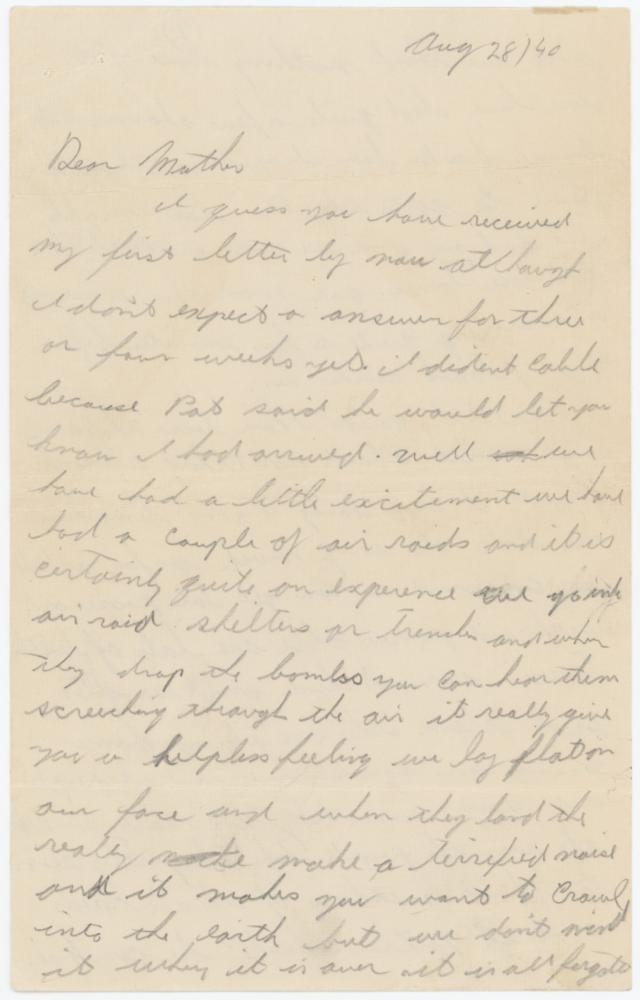 Aug 28/40
Dear Mother
I guess you have received
my first letter by now although
I don't expect a answer for three
or four weeks yet. I dident Cable
because Pat said he would let you
know I had arrived. Well we
have had a little excitement we have
had a couple of air raids and it is
certainly quite an experence we go into
air raid shelters or trenches and when
they drop the bombs you can hear them
screeching through the air it really give
you a helpless feeling we lay flat on
our face and when they land the
really make a terrified noise
and it makes you want to Crawl
into the earth but we don't mind
it when it is over it is all forgot